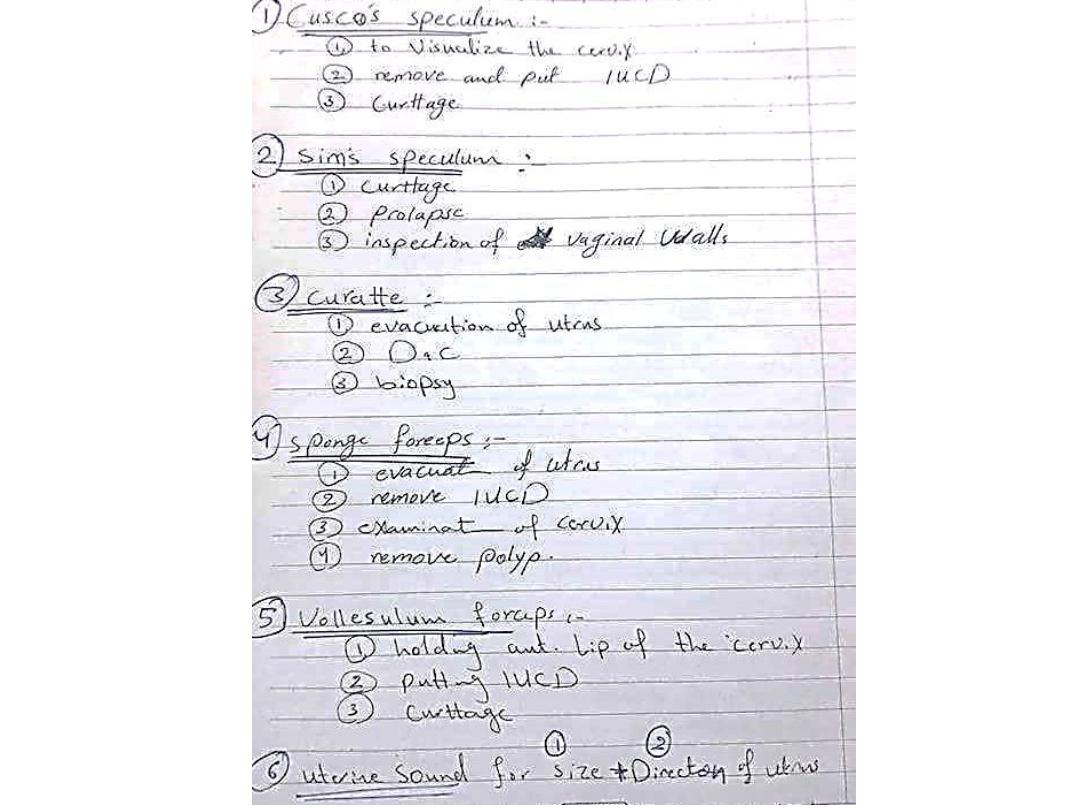 1) Cusco's speculum :-
① to Visualize the cervix
② remove and put IUCD
③ Curttage
2) Sim's speculum :-
① Curttage
② Prolapse
③ inspection of vaginal Walls
3) Curatte :-
① evacuation of utrus
② D & C
③ biopsy
4) Sponge foreeps :-
① evacuat of utrus
② remove IUCD
③ examinat of cervix
④ remove polyp.
5) Vollesulum forceps :-
① holding ant. Lip of the cervix
② putting IUCD
③ Curttage
① ②
6) Uterine Sound for Size + Direction of utrus